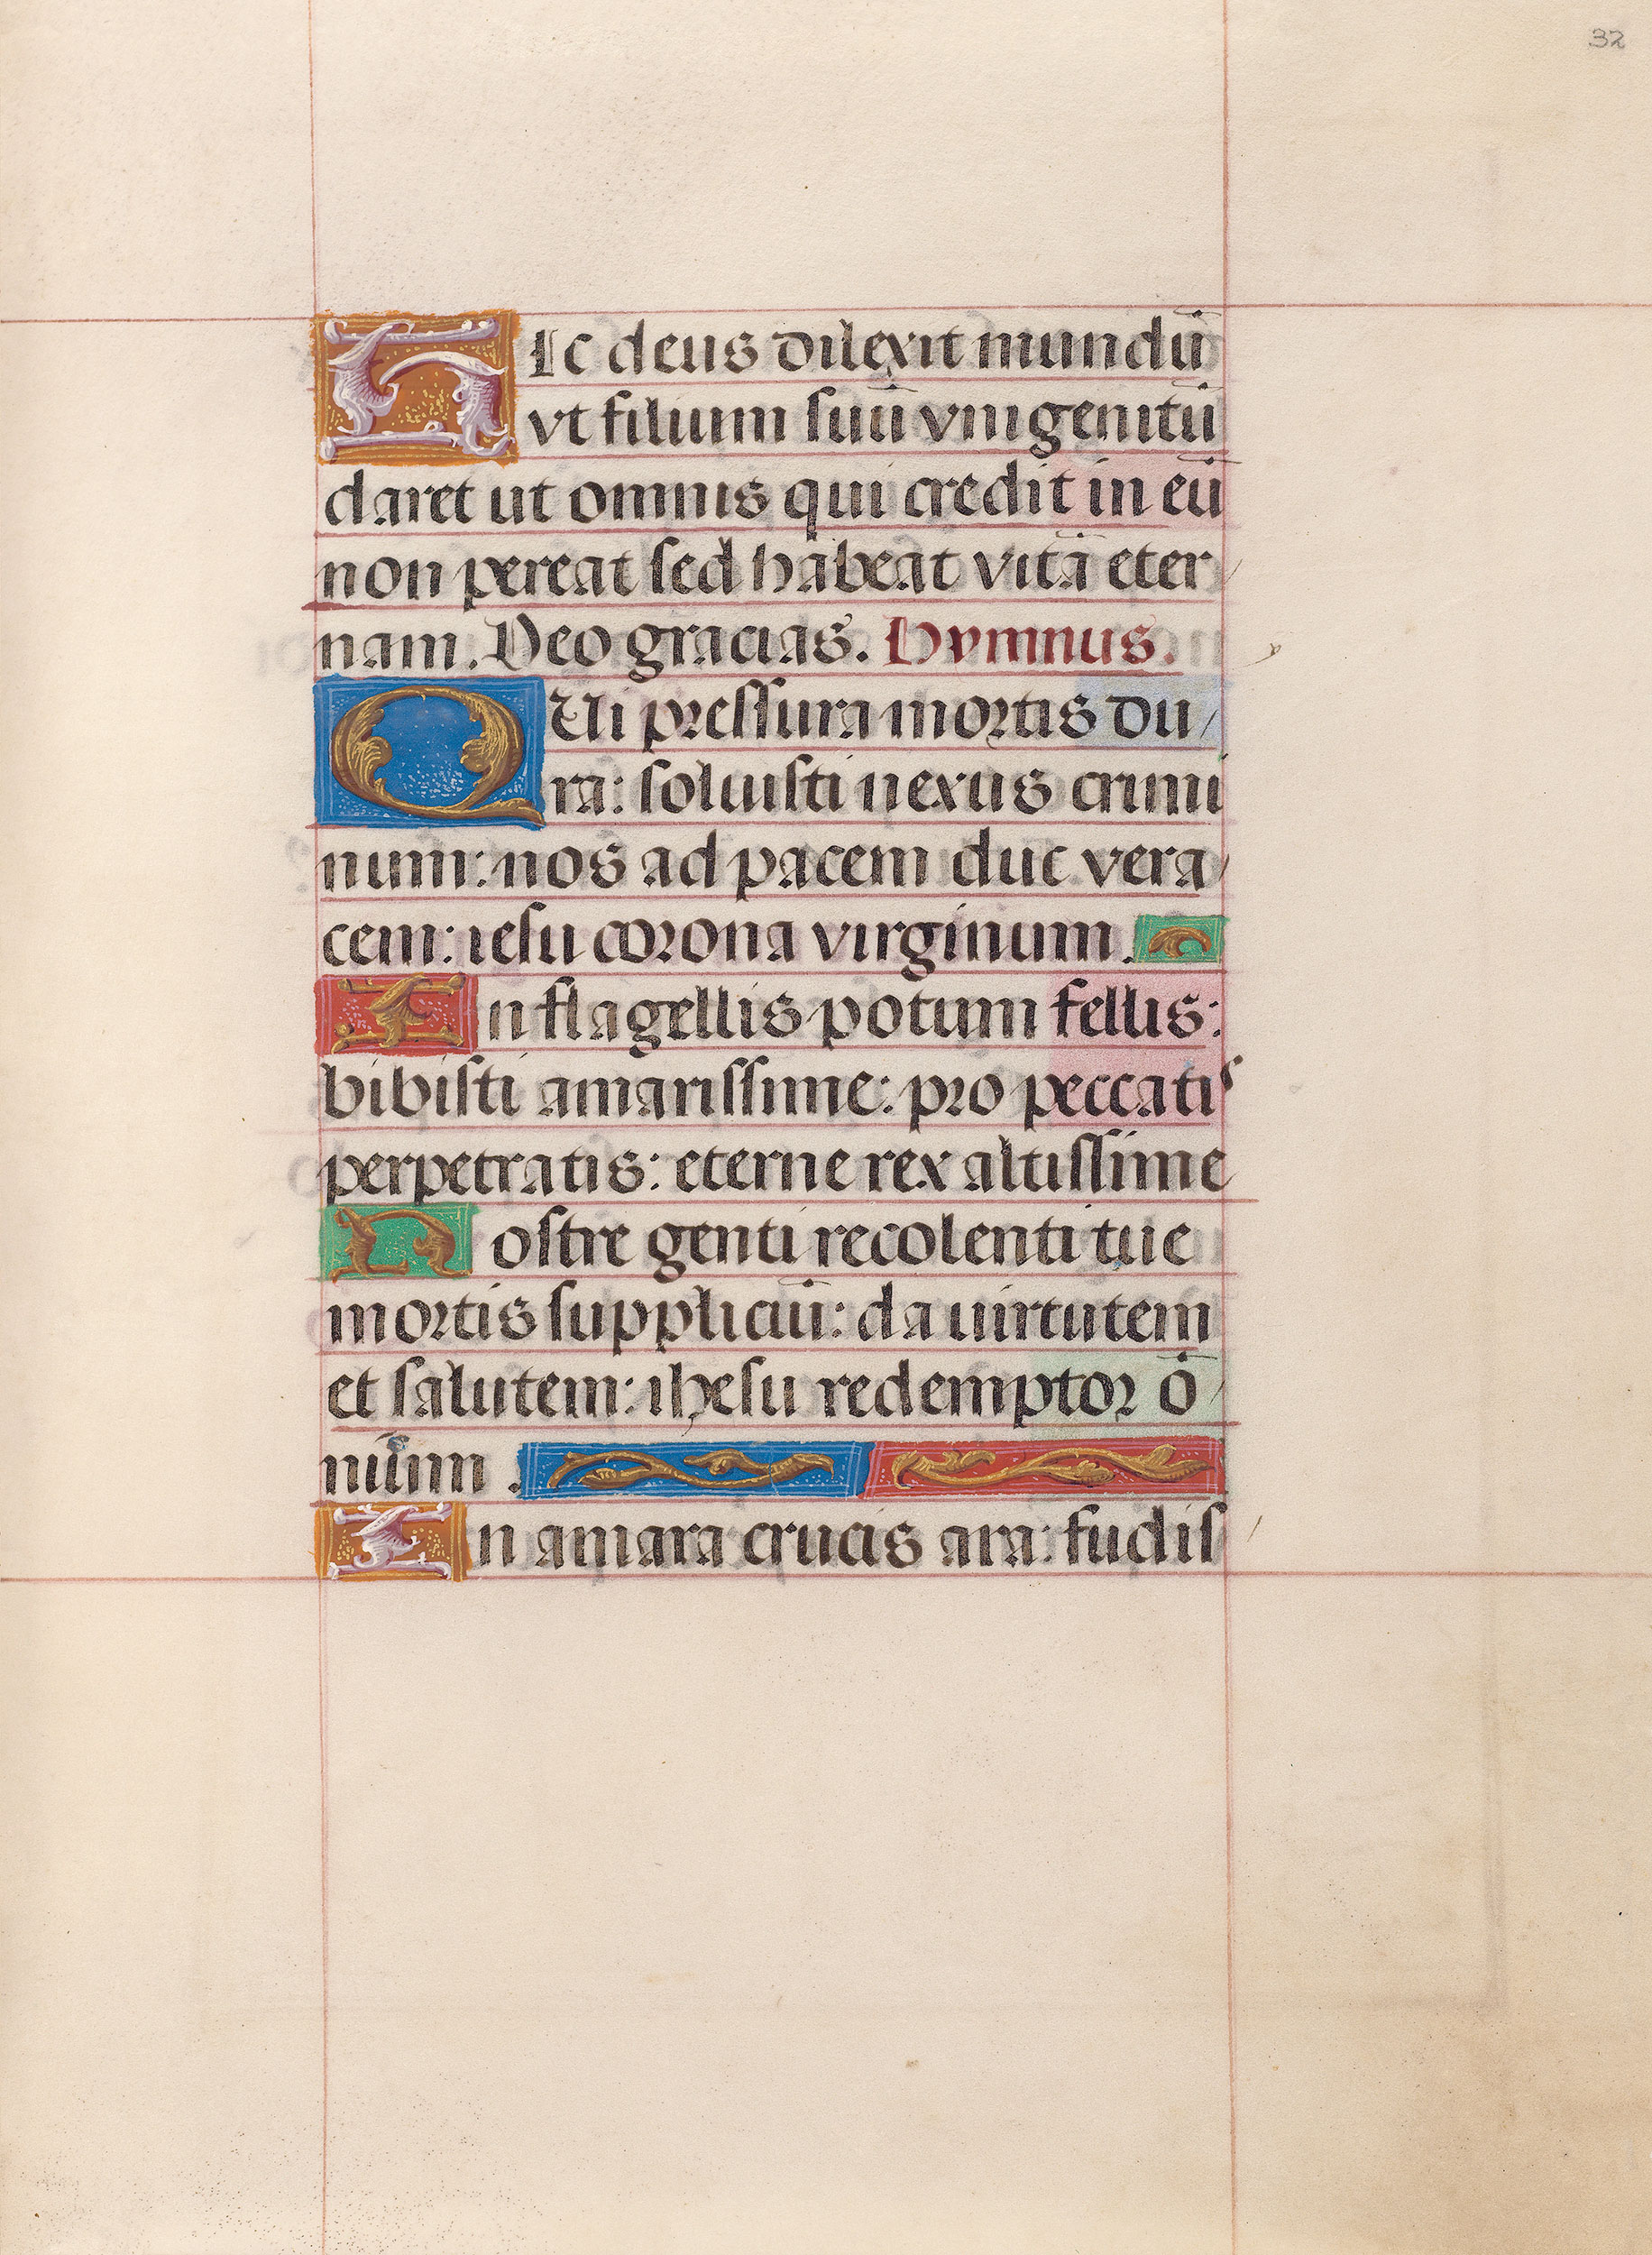 32
HIc deus dilexit mundū
vt filium suū vnigenitū
daret ut omnis qui credit in eū
non pereat sed habeat vitā eter/
nam. Deo gracias. Hymnus.
QUi pressura mortis du/
ra: soluisti nexus crimi
num: nos ad pacem duc vera/
cem: iesu corona virginum.
In flagellis potum fellis:
bibisti amarissime: pro peccatis
perpetratis: eterne rex altissime
Nostre genti recolenti tue
mortis suppliciū: da uirtutem
et salutem: ihesu redemptor ō/
nium.
In amara crucis ara: fudis/